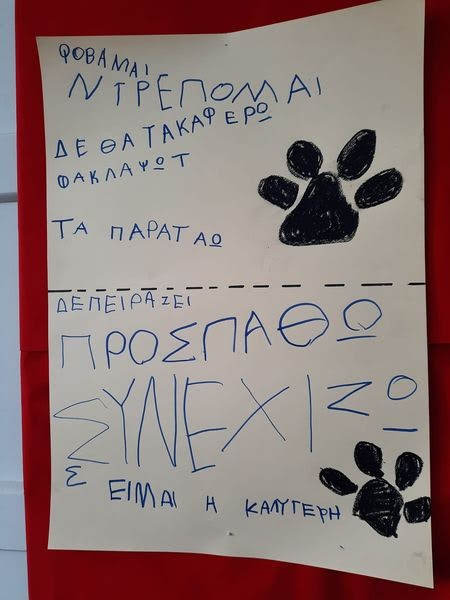 ΦΟΒΑΜΑΙ
ΝΤΡΕΠΟΜΑΙ
ΔΕ ΘΑ ΤΑ ΚΑΦΕΡΩ
ΘΑ ΚΛΑΨΩ Τ
ΤΑ ΠΑΡΑΤΑΩ
ΔΕΠΕΙΡΑΖΕΙ
ΠΡΟΣΠΑΘΩ
ΣΥΝΕΧΙΖΩ
Σ ΕΙΜΑΙ Η ΚΑΛΥΤΕΡΗ